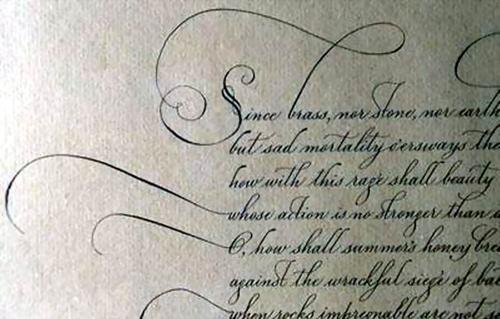 Since brass, nor stone, nor earth
but sad mortality o'ersways the
how with this rage shall beauty
whose action is no stronger than a
O, how shall summer's honey brea
against the wrackful siege of bat
when rocks impregnable are not s